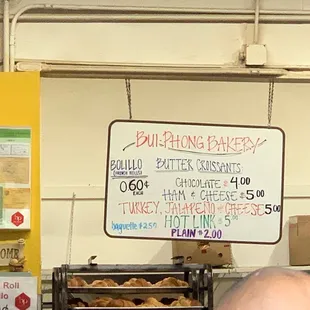 BUI-PHONG BAKERY
BOLILLO
(FRENCH ROLLS)
060¢
EACH
baguette $2.59
BUTTER CROISSANTS
CHOCOLATE $4.00
HAM & CHEESE $5.00
TURKEY, JALAPEÑO & CHEESE 5.00
HOT LINK $5
PLAIN $2.00
OME
Roll